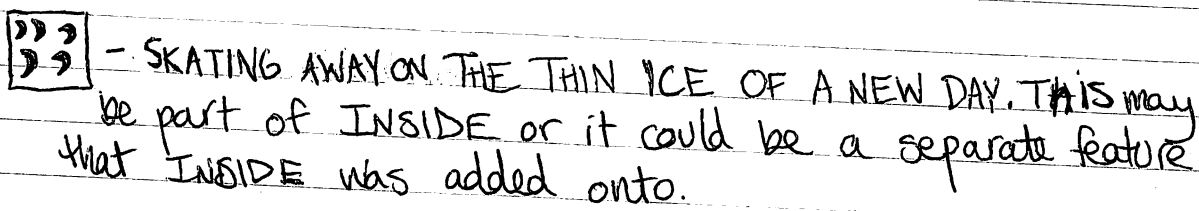 - SKATING AWAY ON THE THIN ICE OF A NEW DAY. THIS may
be part of INSIDE or it could be a separate feature
that INSIDE was added onto.